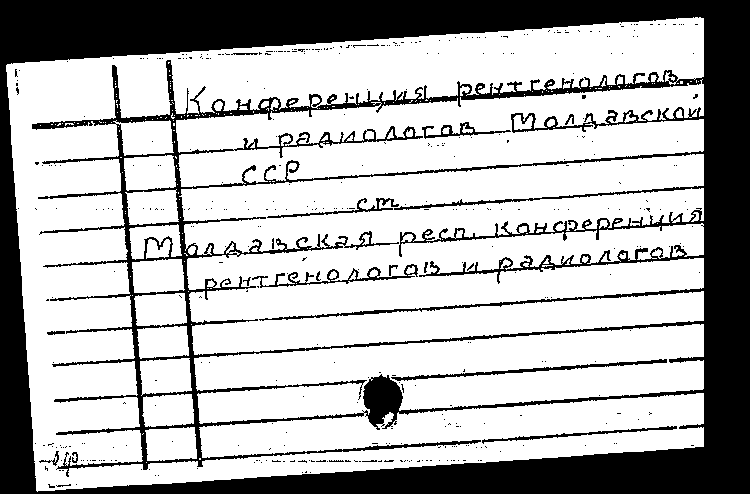 Конференция рентгенологов
и радиологов Молдавской
ССР
см
Молдавская респ. конференция
рентгенологов и радиологов